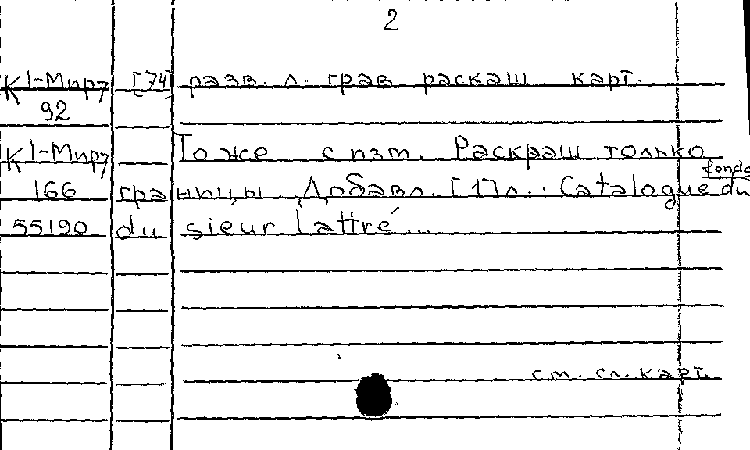 2
К1-Мир7 [74] разв. л. грав. раскаш. карт.
92
К1-Мир7 То же с изт. Раскраш только
166 границы. Добавл. [1] л.: Catalogue du fonds
55190 du sieur Lattré...
см. сл. карт.